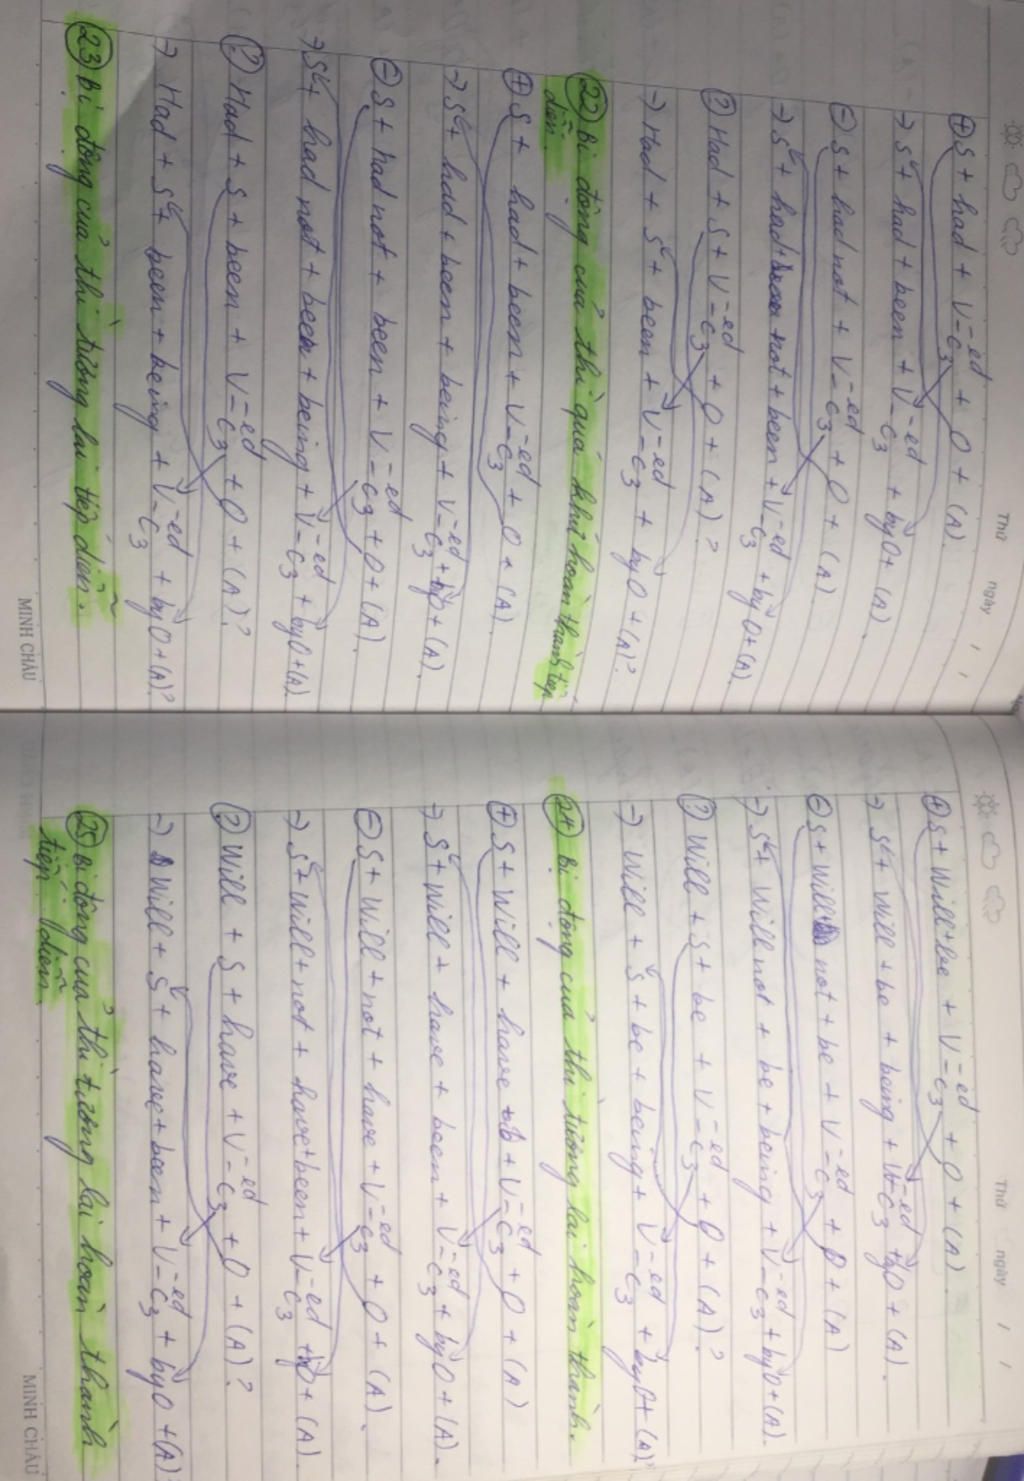 Thứ ngày / /
(+) S + had + V-ed/c3 + O + (A).
→ S' + had + been + V-ed/c3 + by O + (A).
(-) S + had not + V-ed/c3 + O + (A).
→ S' + had + not + been + V-ed/c3 + by O + (A).
(?) Had + S + V-ed/c3 + O + (A)?
→ Had + S' + been + V-ed/c3 + by O + (A)?
(22) Bị động của thì quá khứ hoàn thành tiếp
diễn.
(+) S + had + been + V-ed/c3 + O + (A).
→ S' + had + been + being + V-ed/c3 + by O + (A).
(-) S + had not + been + V-ed/c3 + O + (A).
→ S' + had not + been + being + V-ed/c3 + by O + (A).
(?) Had + S + been + V-ed/c3 + O + (A)?
→ Had + S' + been + being + V-ed/c3 + by O + (A)?
(23) Bị động của thì tương lai tiếp diễn.
MINH CHÂU
Thứ ngày / /
(+) S + Will + be + V-ed/c3 + O + (A)
→ S' + Will + be + being + V-ed/c3 + by O + (A).
(-) S + Will not + be + V-ed/c3 + O + (A)
→ S' + Will not + be + being + V-ed/c3 + by O + (A).
(?) Will + S + be + V-ed/c3 + O + (A)?
→ Will + S' + be + being + V-ed/c3 + by O + (A)?
(24) Bị động của thì tương lai hoàn thành.
(+) S + Will + have + V-ed/c3 + O + (A)
→ S' + Will + have + been + V-ed/c3 + by O + (A).
(-) S + Will + not + have + V-ed/c3 + O + (A).
→ S' + Will + not + have + been + V-ed/c3 + by O + (A).
(?) Will + S + have + V-ed/c3 + O + (A)?
→ Will + S' + have + been + V-ed/c3 + by O + (A)
(25) Bị động của thì tương lai hoàn thành
tiếp diễn
MINH CHÂU